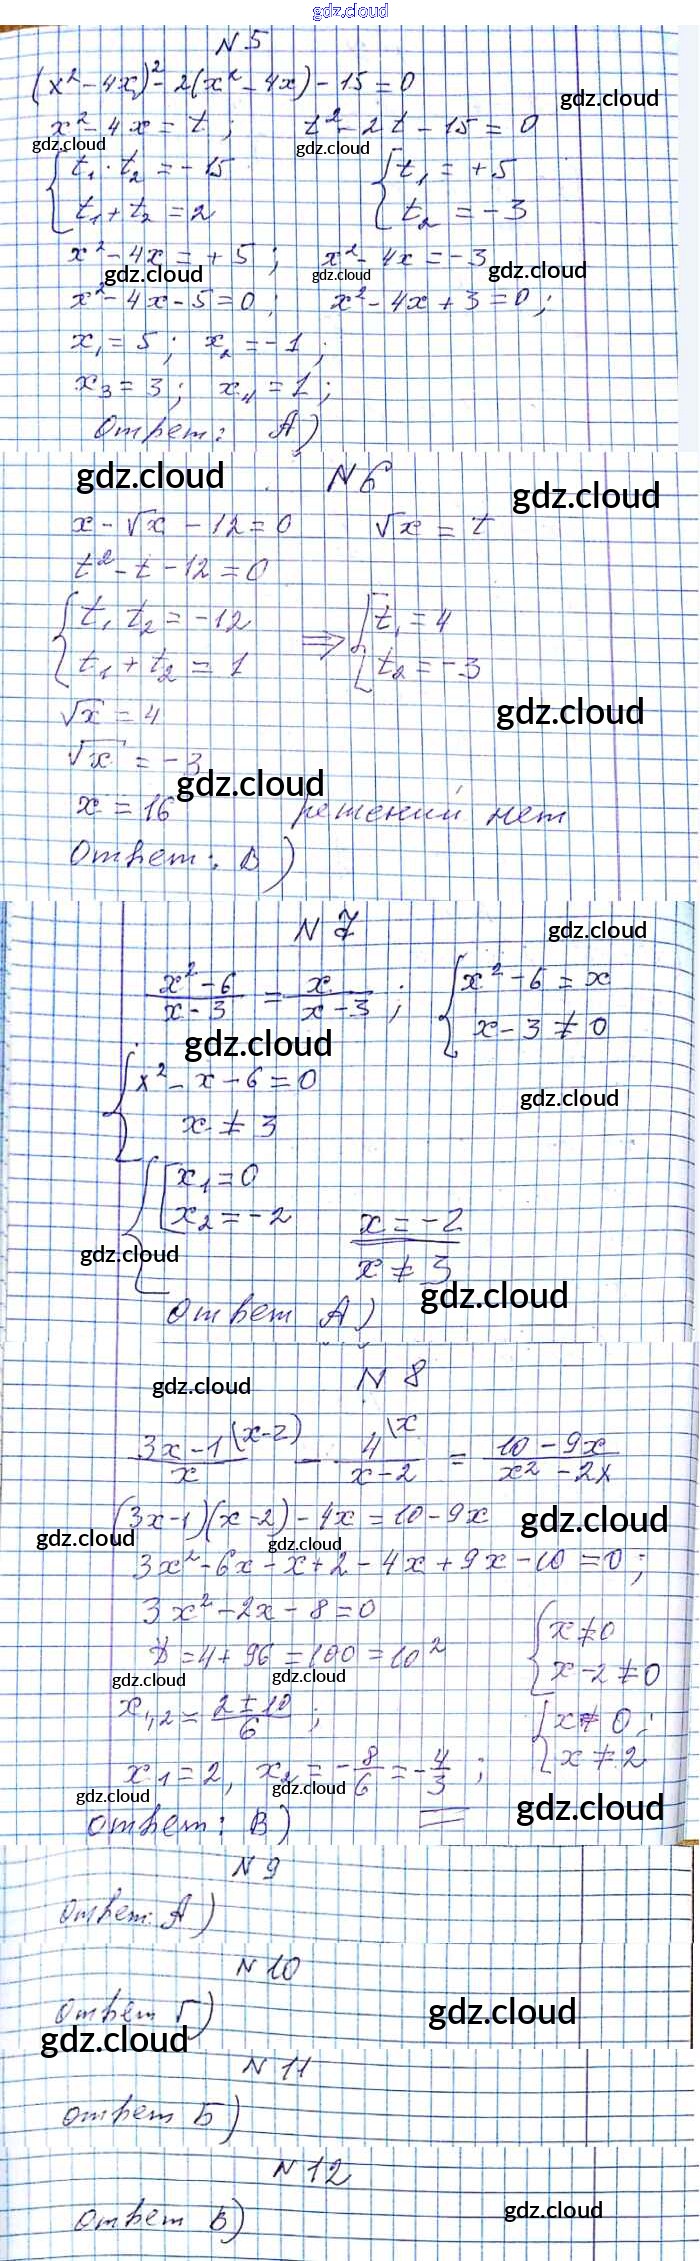 gdz.cloud
N 5
(x² - 4x)² - 2(x² - 4x) - 15 = 0
gdz.cloud
x² - 4x = t ; t² - 2t - 15 = 0
gdz.cloud gdz.cloud
t₁ · t₂ = -15 t₁ = +5
t₁ + t₂ = 2 t₂ = -3
x² - 4x = +5 ; x² - 4x = -3
gdz.cloud gdz.cloud gdz.cloud
x² - 4x - 5 = 0 ; x² - 4x + 3 = 0 ;
x₁ = 5 ; x₂ = -1 ;
x₃ = 3 ; x₄ = 1 ;
Ответ: А)
gdz.cloud N 6 gdz.cloud
x - √x - 12 = 0 √x = t
t² - t - 12 = 0
t₁ t₂ = -12 ⇒ t₁ = 4
t₁ + t₂ = 1 t₂ = -3
√x = 4 gdz.cloud
√x = -3
gdz.cloud
x = 16 решений нет
Ответ: В)
N 7 gdz.cloud
(x² - 6)/(x - 3) = x/(x - 3) ; x² - 6 = x
x - 3 ≠ 0
gdz.cloud
x² - x - 6 = 0
gdz.cloud
x ≠ 3
x₁ = 0
x₂ = -2 x = -2
gdz.cloud x ≠ 3
gdz.cloud
Ответ А)
gdz.cloud N 8
(3x - 1)/x \(x-2) - 4/(x - 2) \x = (10 - 9x)/(x² - 2x)
(3x - 1)(x - 2) - 4x = 10 - 9x gdz.cloud
gdz.cloud gdz.cloud
3x² - 6x - x + 2 - 4x + 9x - 10 = 0 ;
3x² - 2x - 8 = 0 x ≠ 0
D = 4 + 96 = 100 = 10² x - 2 ≠ 0
gdz.cloud gdz.cloud
x₁,₂ = (2 ± 10)/6 ; x ≠ 0 ;
x₁ = 2, x₂ = -8/6 = -4/3 ; x ≠ 2
gdz.cloud gdz.cloud gdz.cloud
Ответ: В)
N 9
Ответ: А)
N 10
Ответ Г) gdz.cloud
gdz.cloud
N 11
Ответ Б)
N 12
Ответ В) gdz.cloud